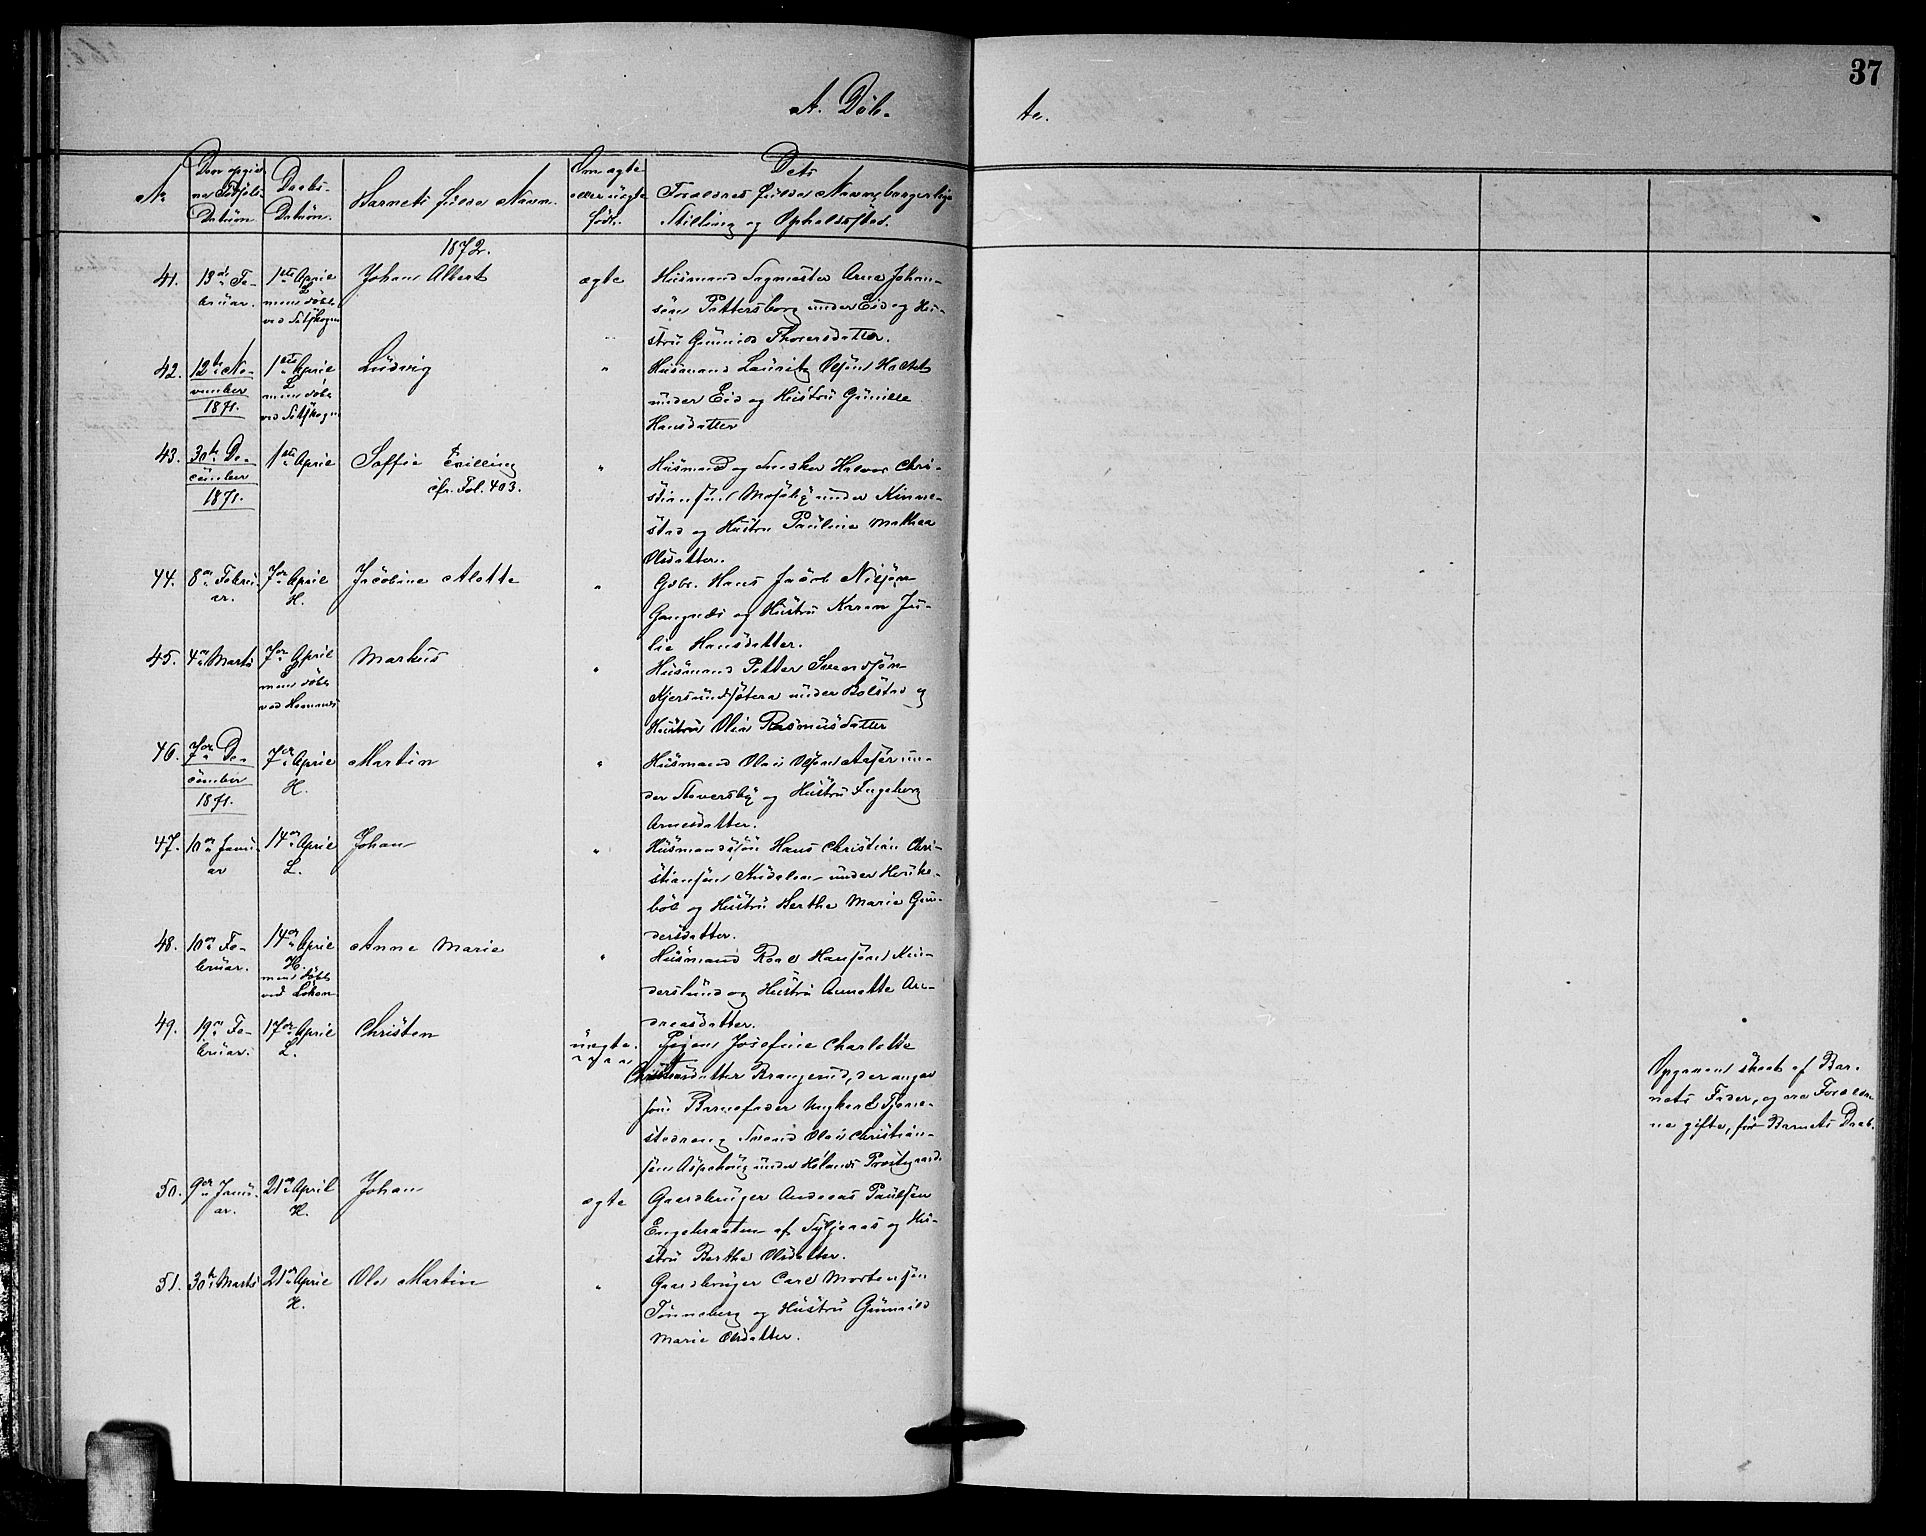 37
A. Døb-
te.
No
Den opgiv
ne Fødsels-
Datum.
Daabs-
Datum.
Barnets fulde Navn.
Om ægte
eller uægte
født.
Dets
Forældres fulde Navn, borgerlige
Stilling og Opholdssted.
1872.
41. 13de Fe-
bruar.
1ste April
L
men døbt
ved Setskogen
Johan Albert
ægte
Husmand Sagmester Arne Johan-
sen Pettersborg under Eid og Hu-
stru Gunnild Thorersdatter.
42. 12te No-
vember
1871.
1ste April
L
men døbt
ved Setskogen
Ludvig
"
Husmand Lauritz Olsøn
under Eid og Hustru Gunille
Hansdatter
43. 30te De-
cember
1871.
1ste April
Soffie Tvilling
cfr. Fol. 403.
"
Husmand og Snedker Halvor Chri-
stiansøn Moseby under Kinne-
stad og Hustru Pauline Mathea
Olsdatter.
44. 8de Febru-
ar.
7de April
H.
Jacobine Alette
"
Gdbr. Hans Jacob Nilsøn
Gangnæs og Hustru Karen Ju-
lie Hansdatter.
45. 4de Marts
7de April
L
men døbt
ved Hemnæs
Markus
"
Husmand Petter Svendsøn
Kjersundsætera under Bolstad og
Hustru Olia Rasmusdatter
46. 7de De-
cember
1871.
7de April
H.
Martin
"
Husmand Olai Olsøn un-
der Steversby og Hustru Ingeborg
Arnesdatter.
47. 10de Janu-
ar
14de April
L.
Johan
"
Husmandssøn Hans Christian Chri-
stiansøn under
og Hustru Berthe Marie Gun-
dersdatter.
48. 10de Fe-
bruar.
14de April
H.
men døbt
ved Løken
Anne Marie
"
Husmand Roal Hansøn
og Hustru Annette An-
dreasdatter.
49. 19de Fe-
bruar.
17de April
L.
Christen
uægte.
Pigen Josefine Charlotte
Christiansdatter Brangerud, der anger
som Barnefader Ungkarl Tjene-
stedreng Svend Olai Christian-
søn Aspehoug under Hølands Prestgaard.
Opgaven skeet af Bar-
nets Fader, og ere Forældre-
ne gifte, før Barnets Daab.
50. 9de Janu-
ar.
21de April
H.
Johan
ægte
Gaardbruger Andreas Paulsen
Engebraaten af Syljeaas og Hu-
stru Berthe Olsdatter.
51. 30te Marts
21de April
H.
Ole Martin
"
Gaardbruger Carl Mortensøn
Tønneberg og Hustru Gunnild
Marie Olsdatter.